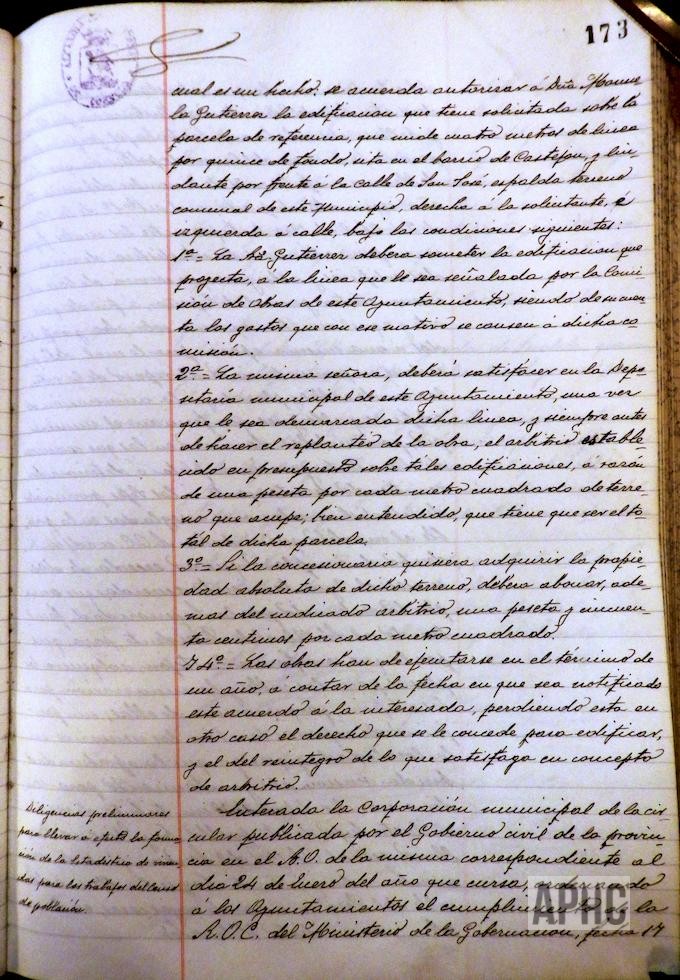 173
cual es un hecho: se acuerda autorizar á Dña Manue
la Gutierrez la edificacion que tiene solicitada sobre la
parcela de referencia, que mide cuatro metros de linea
por quince de fondo, sita en el barrio de Castejon, y lin-
dante por frente á la Calle de San José, espalda terreno
comunal de este Municipio, derecha á la solicitante, é
izquierda á calle, bajo las condiciones siguientes:
1ª = La Gutierrez deberá someter la edificacion que
proyecta, á la linea que le sea señalada por la Comi
sión de obras de este Ayuntamiento, siendo de su cuen
ta los gastos que con ese motivo se causen á dicha co-
misión.
2ª = La misma señora, deberá satisfacer en la Depo
sitaria municipal de este Ayuntamiento, una vez
que le sea demarcada dicha linea, y siempre antes
de hacer el replanteo de la obra, el arbitrio estable
cido en presupuesto sobre tales edificaciones, á razón
de una peseta por cada metro cuadrado de terre-
no que ocupe; bien entendido, que tiene que ser el to
tal de dicha parcela.
3º = Si la concesionaria quisiera adquirir la propie-
dad absoluta de dicho terreno, deberá abonar, ade-
mas del indicado arbitrio, una peseta y cincuen-
ta centimos por cada metro cuadrado.
Y 4º = Las obras han de ejecutarse en el término de
un año, á contar de la fecha en que sea notificado
este acuerdo á la interesada, perdiendo esta en
otro caso el derecho que se le concede para edificar,
y el del reintegro de lo que satisfaga en concepto
de arbitrio.
Diligencias preliminares
para llevar á efecto la forma
ción de la Estadistica de vivien
das para los trabajos del Censo
de población.
Enterada la Corporación municipal de la cir
cular publicada por el Gobierno civil de la provin-
cia en el B.O. de la misma correspondiente al
dia 24 de Enero del año que cursa, ordenando
á los Ayuntamientos el cumplimiento de la
R.O.C. del Ministerio de la Gobernación, fecha 17
APHC